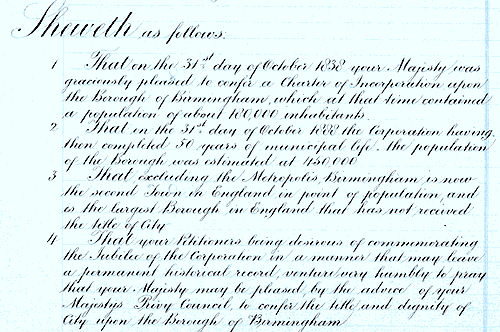 Sheweth as follows:
1 That on the 31st day of October 1838 your Majesty was
graciously pleased to confer a Charter of Incorporation upon
the Borough of Birmingham, which at that time contained
a population of about 180,000 inhabitants.
2 That in the 31st day of October 1888 the Corporation having
then completed 50 years of municipal life. the population
of the Borough was estimated at 450000
3 That excluding the Metropolis, Birmingham is now
the second Town in England in point of population, and
is the largest Borough in England that has not received
the title of City
4 That your Petitioners being desirous of commemorating
the Jubilee of the Corporation in a manner that may leave
a permanent historical record, venture very humbly to pray
that your Majesty may be pleased, by the advice of your
Majestys Privy Council, to confer the title and dignity of
City upon the Borough of Birmingham